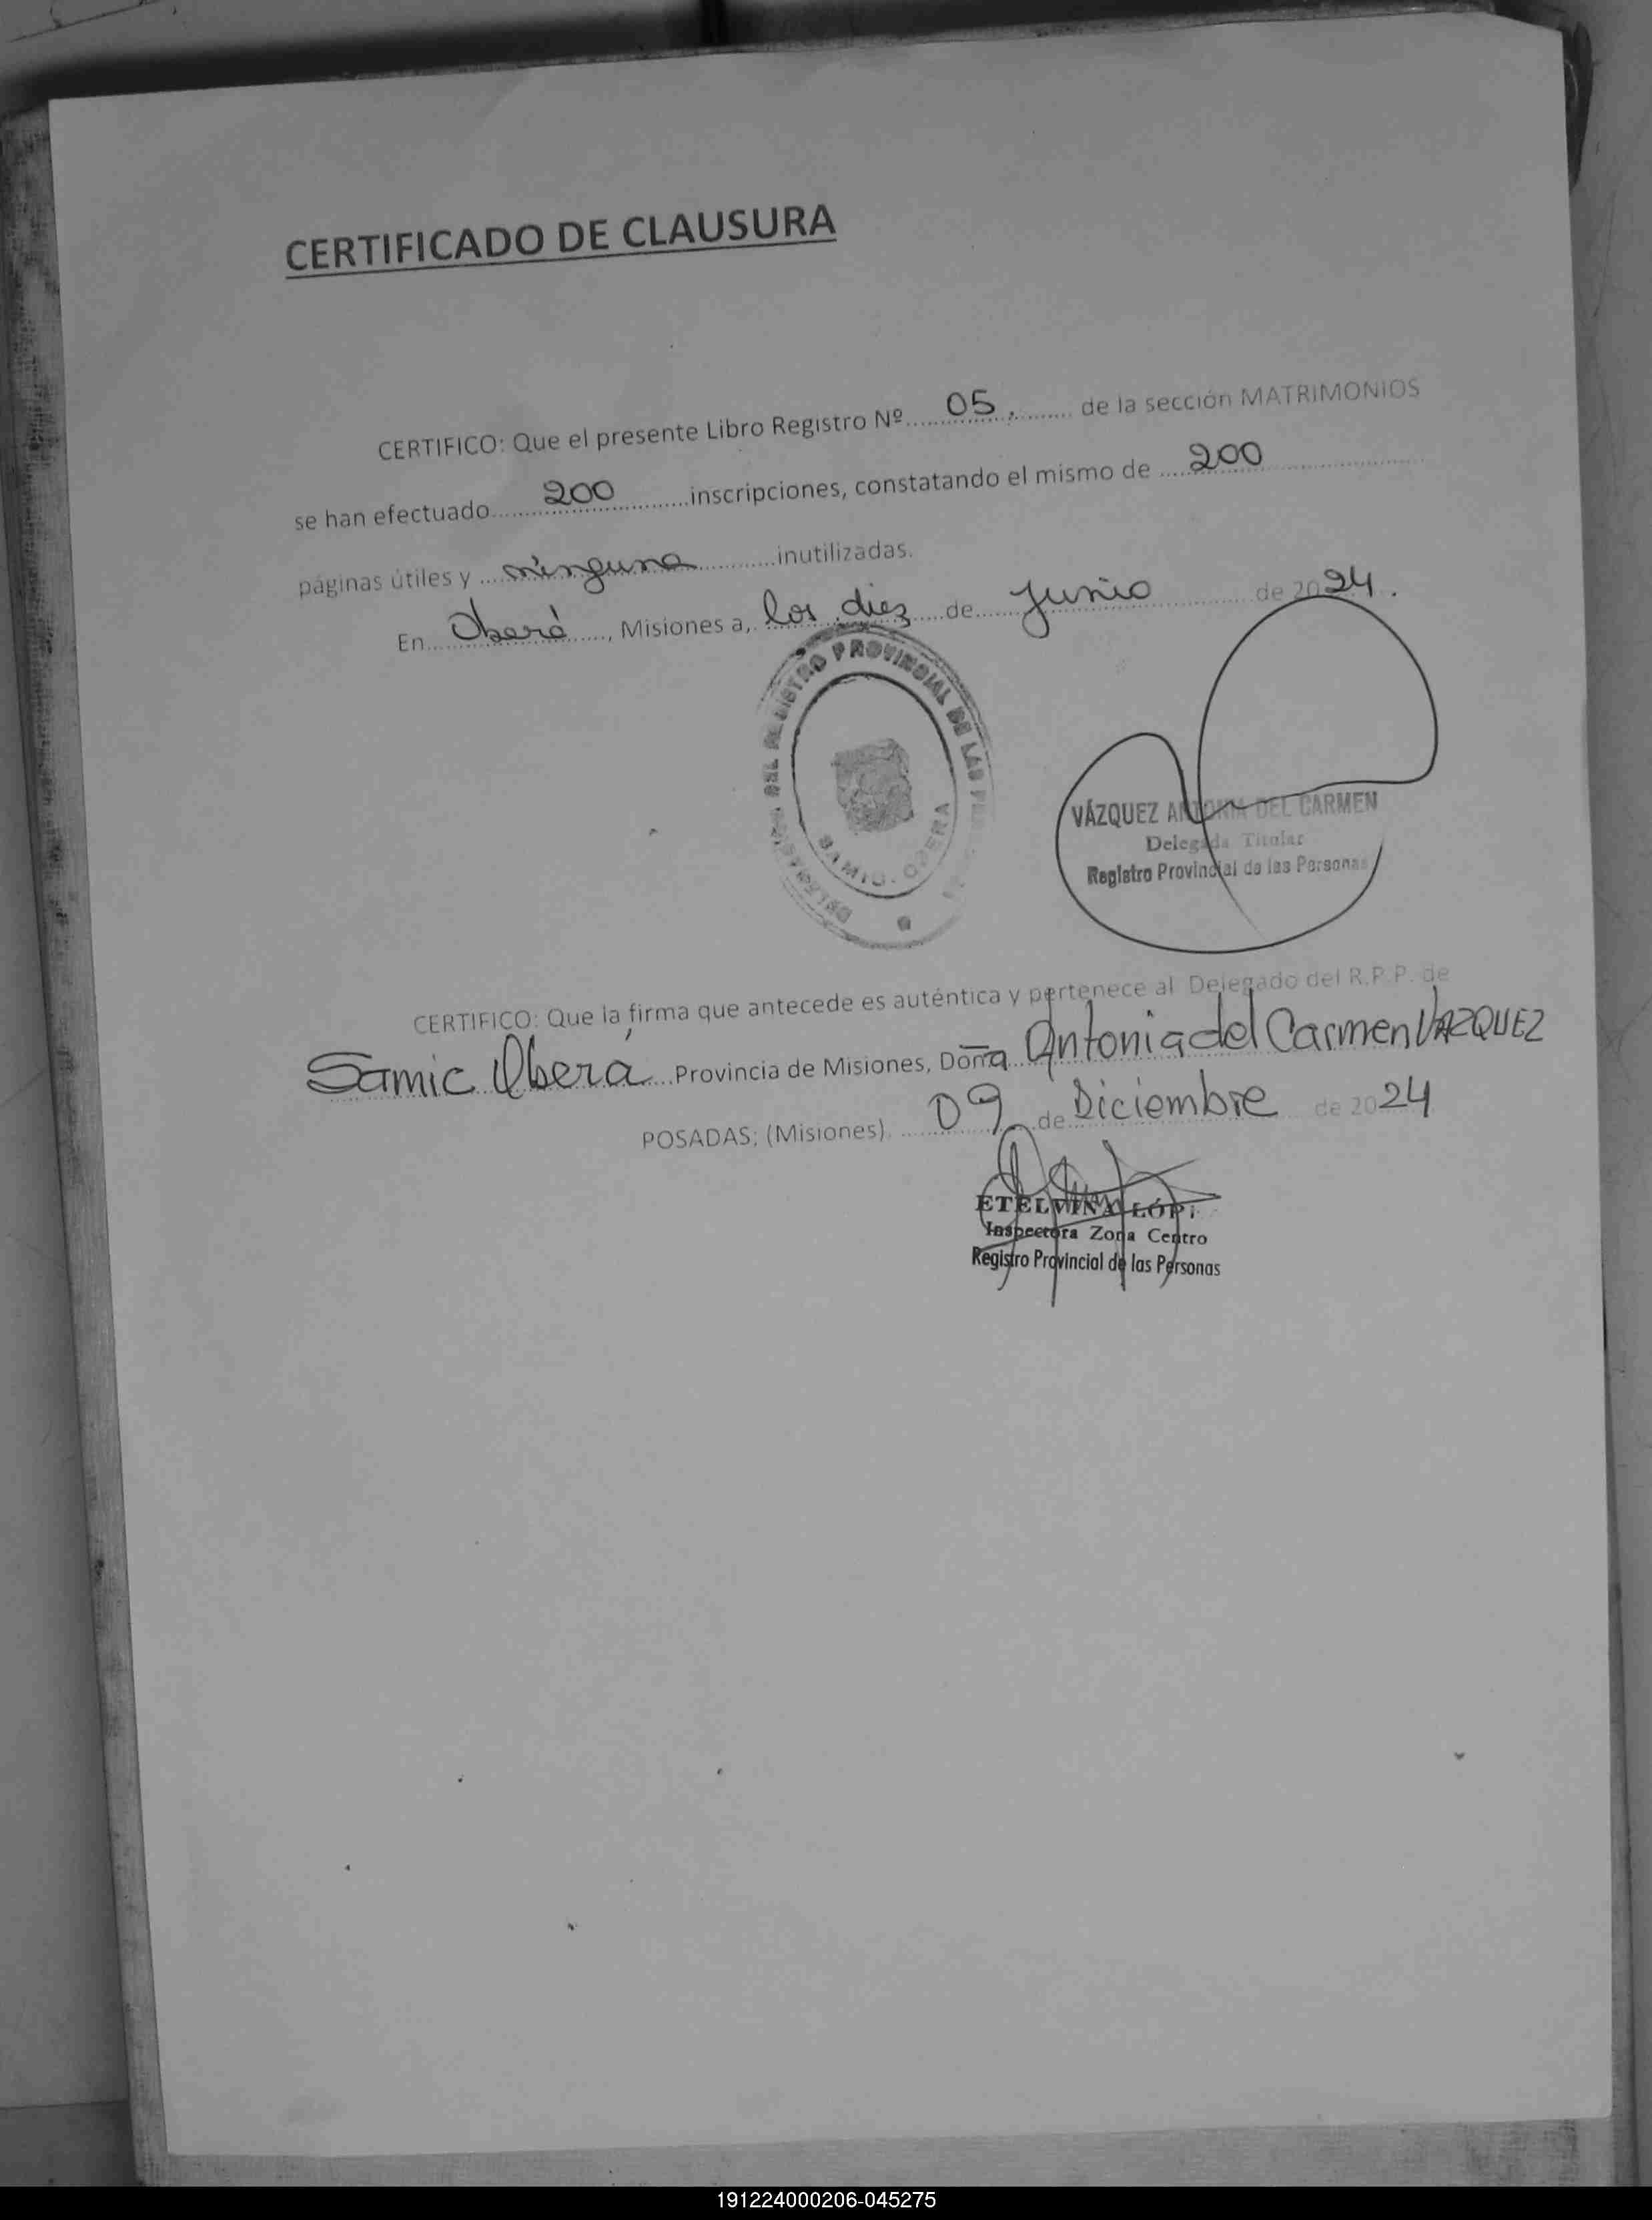 CERTIFICADO DE CLAUSURA
CERTIFICO: Que el presente Libro Registro Nº 05. de la sección MATRIMONIOS
se han efectuado 200 inscripciones, constatando el mismo de 200
páginas útiles y ninguna inutilizadas.
En Oberá, Misiones a, los diez de Junio de 2024.
DELEGACION DEL REGISTRO PROVINCIAL DE LAS
SAMIC. OBERA
VÁZQUEZ ANTONIA DEL CARMEN
Delegada Titular
Registro Provincial de las Personas
CERTIFICO: Que la firma que antecede es auténtica y pertenece al Delegado del R.P.P. de
Samic Oberá Provincia de Misiones, Doña Antonia del Carmen VAZQUEZ
POSADAS; (Misiones), 09 de Diciembre de 2024
ETELVINA
Inspectora Zona Centro
Registro Provincial de las Personas
191224000206-045275